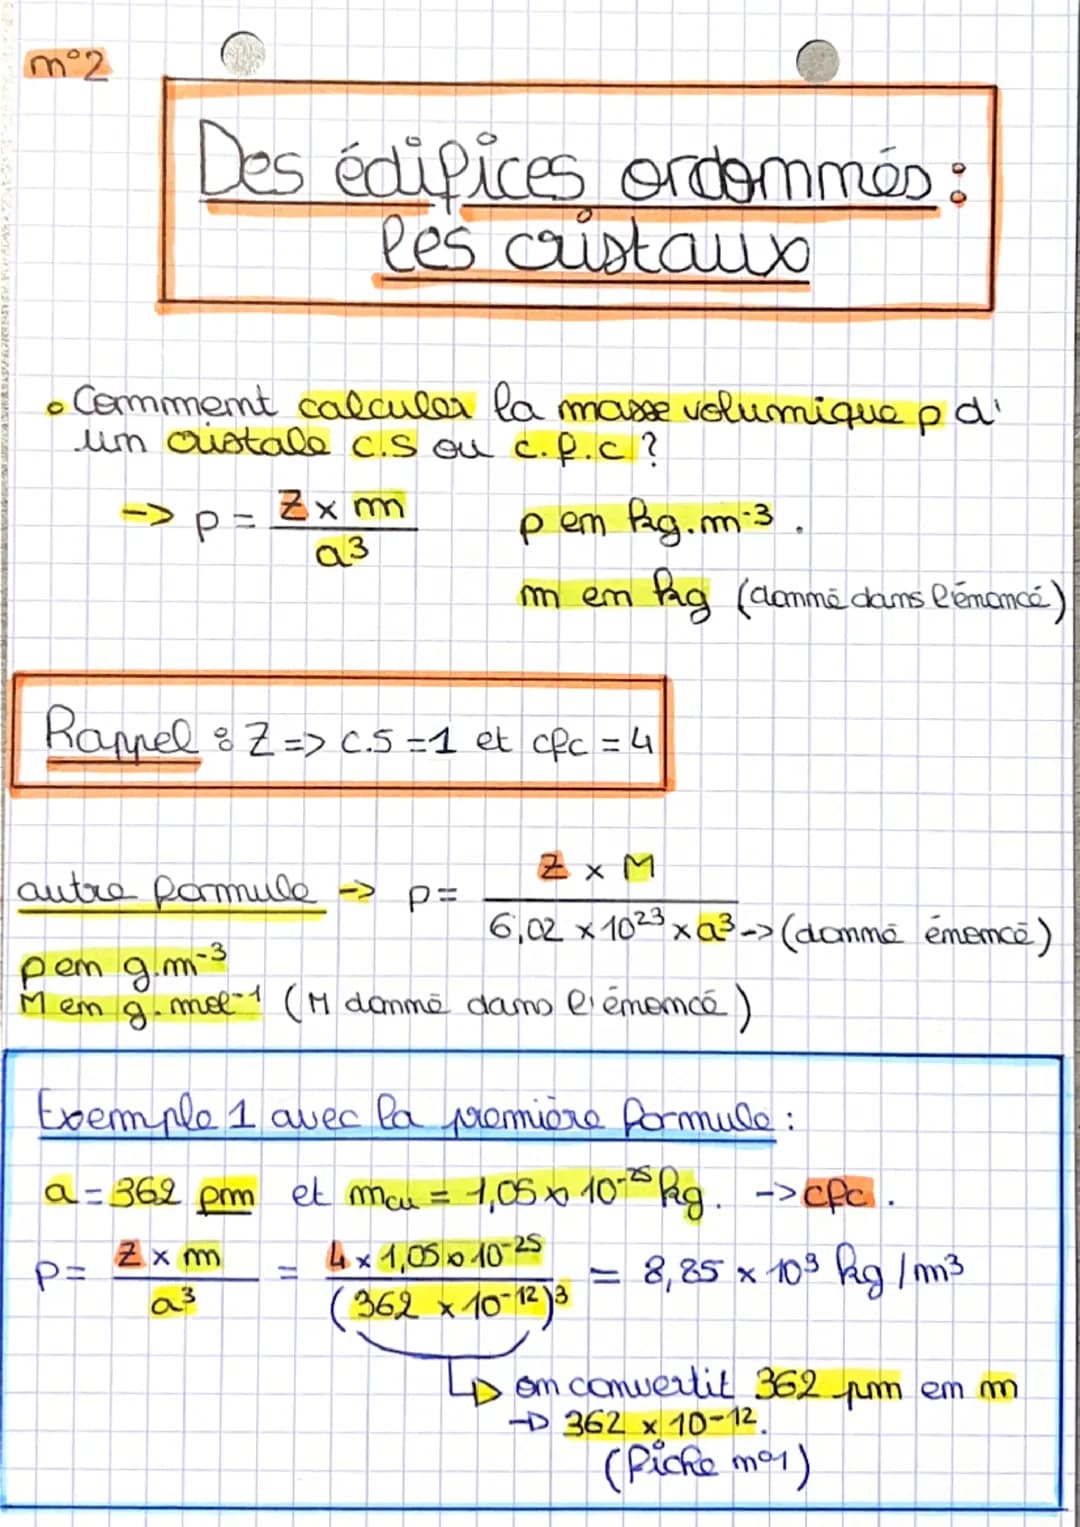 n°2
Des édifices ordonnés :
les cristaux
• Comment calculer la masse volumique ρ d'
un cristale c.s ou c.f.c ?
-> ρ = Z x m / a³
ρ en kg.m⁻³.
m en kg (donné dans l'énoncé)
Rappel : Z => c.s = 1 et cfc = 4
autre formule -> ρ = Z x M / 6,02 x 10²³ x a³ -> (donné énoncé)
ρ en g.m⁻³
M en g.mol⁻¹ (M donné dans l'énoncé)
Exemple 1 avec la première formule :
a = 362 pm et mcu = 1,05 x 10⁻²⁵ kg. -> cfc.
ρ = Z x m / a³ = 4 x 1,05 x 10⁻²⁵ / (362 x 10⁻¹²)³ = 8,85 x 10³ kg/m³
↳ on convertit 362 pm en m
-> 362 x 10⁻¹².
(fiche n°1)